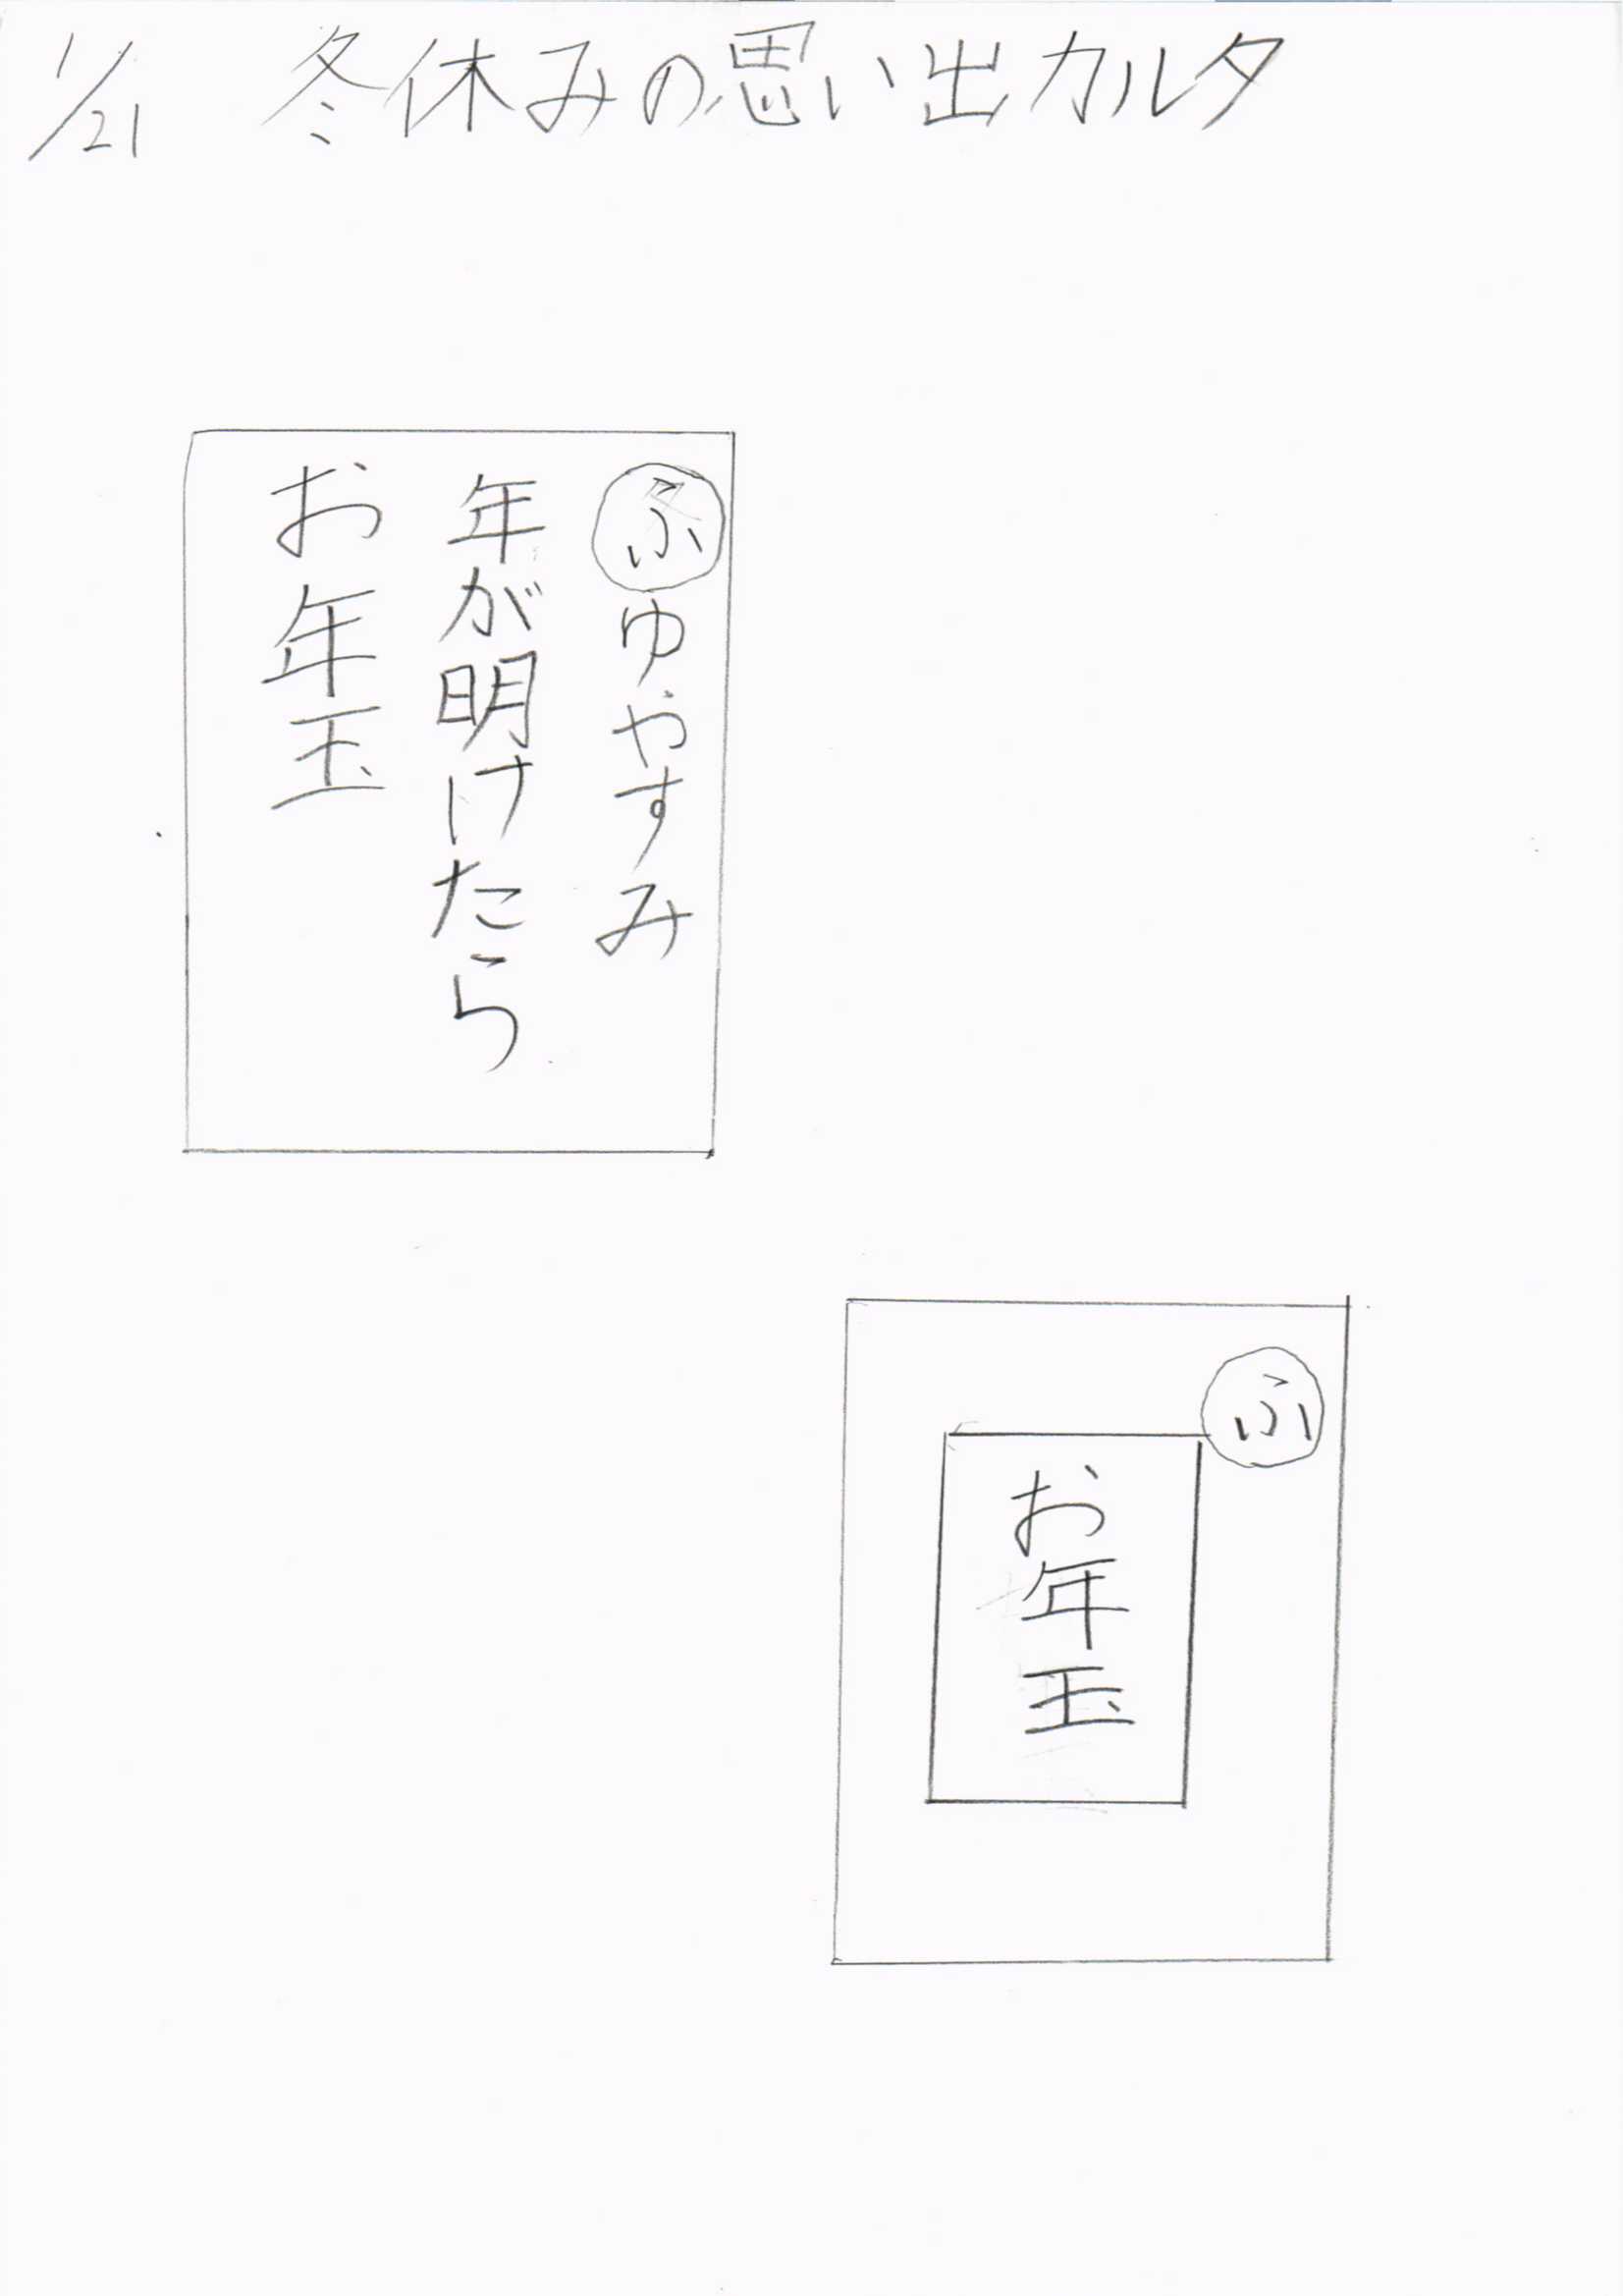 1/21 冬休みの思い出カルタ
ふゆやすみ
年が明けたら
お年玉
ふ
お年玉